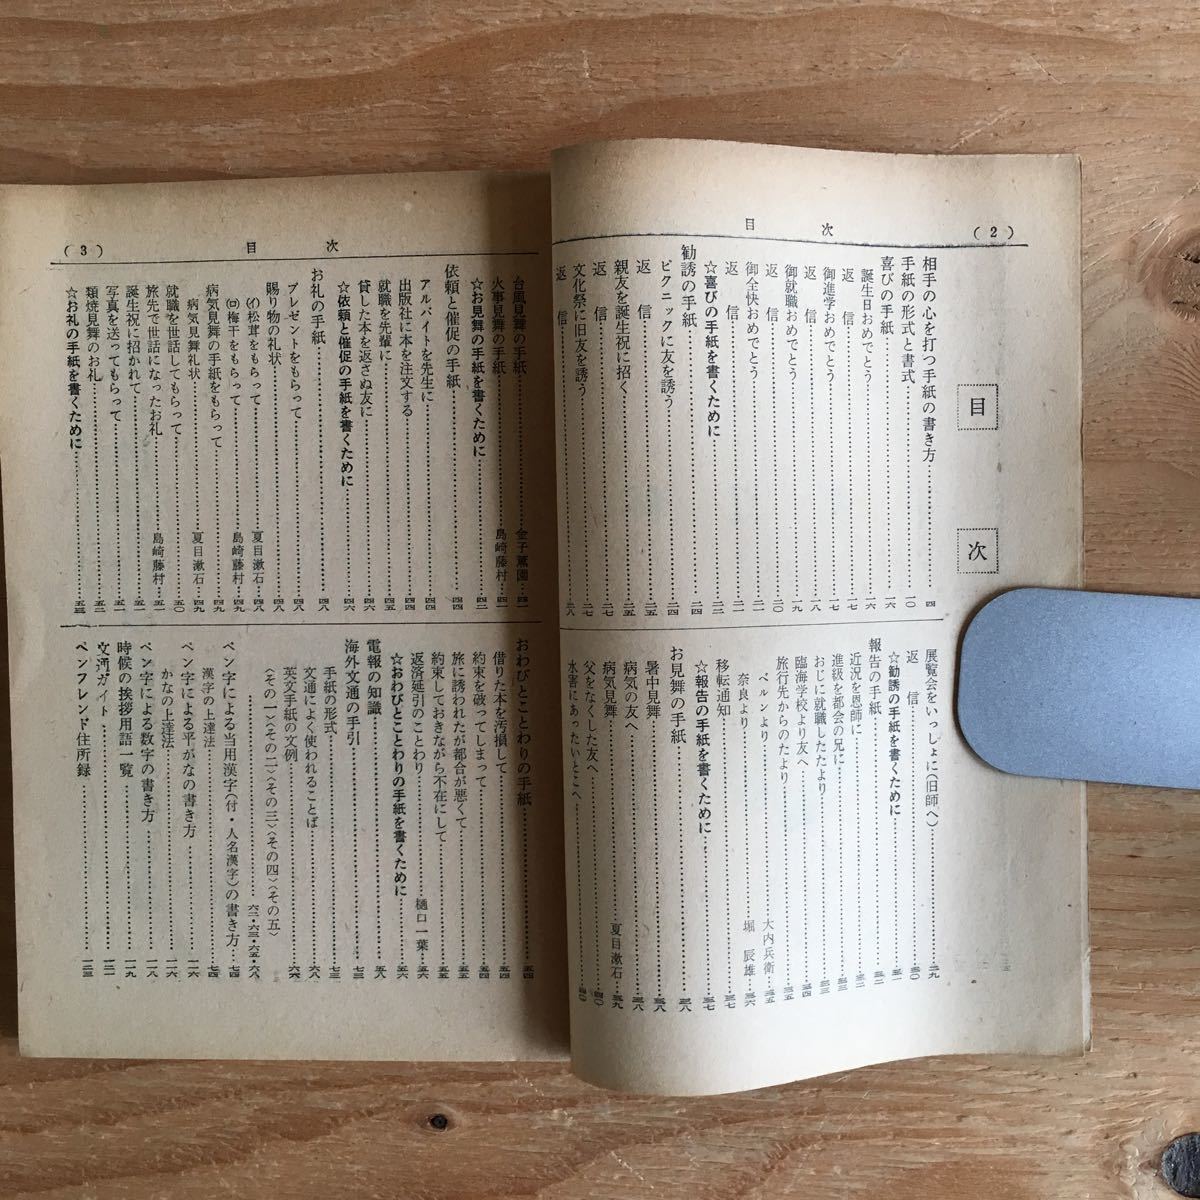 (2)
目次
目次
相手の心を打つ手紙の書き方……四
手紙の形式と書式……一〇
喜びの手紙……一六
誕生日おめでとう……一六
返信……一七
御進学おめでとう……一七
返信……一八
御就職おめでとう……一九
返信……二〇
御全快おめでとう……二一
返信……二二
☆喜びの手紙を書くために……二三
勧誘の手紙……二四
ピクニックに友を誘う……二四
返信……二五
親友を誕生祝に招く……二五
返信……二六
文化祭に旧友を誘う……二七
返信……二八
展覧会をいっしょに(旧師へ)……二九
返信……三〇
☆勧誘の手紙を書くために……三一
報告の手紙……三二
近況を恩師に……三二
進級を都会の兄に……三三
おじに就職したたより……三三
臨海学校より友へ……三四
旅行先からのたより……三五
ベルンより……大内兵衛……三五
奈良より……堀辰雄……三六
移転通知……三七
☆報告の手紙を書くために……三七
お見舞の手紙……三八
暑中見舞……三八
病気の友へ……三八
病気見舞……夏目漱石……三九
父をなくした友へ……四〇
水害にあったいとこへ……四〇
目次
(3)
台風見舞の手紙……金子薫園……四一
火事見舞の手紙……島崎藤村……四一
☆お見舞の手紙を書くために……四二
依頼と催促の手紙……四四
アルバイトを先生に……四四
出版社に本を注文する……四四
就職を先輩に……四五
貸した本を返さぬ友に……四六
☆依頼と催促の手紙を書くために……四六
お礼の手紙……四八
プレゼントをもらって……四八
賜り物の礼状……四八
(イ)松茸をもらって……夏目漱石……四八
(ロ)梅干をもらって……島崎藤村……四九
病気見舞の手紙をもらって……四九
病気見舞礼状……夏目漱石……四九
就職を世話してもらって……五〇
旅先で世話になったお礼……島崎藤村……五一
誕生祝に招かれて……五一
写真を送ってもらって……五二
類焼見舞のお礼……五二
☆お礼の手紙を書くために……五三
おわびとことわりの手紙……五四
借りた本を汚損して……五四
約束を破ってしまって……五四
旅に誘われたが都合が悪くて……五五
約束しておきながら不在にして……五五
返済延引のことわり……樋口一葉……五六
☆おわびとことわりの手紙を書くために……五六
電報の知識……五八
海外文通の手引
手紙の形式……七三
文通によく使われることば……六八
英文手紙の文例……六六
(その一)(その二)(その三)(その四)(その五)
……六二・六三・六五・六八
ペン字による当用漢字(付・人名漢字)の書き方……七四
漢字の上達法……七四
ペン字による平がなの書き方……一一六
かなの上達法……一一六
ペン字による数字の書き方……一一八
時候の挨拶用語一覧……一一九
文通ガイド……一二一
ペンフレンド住所録……一二五